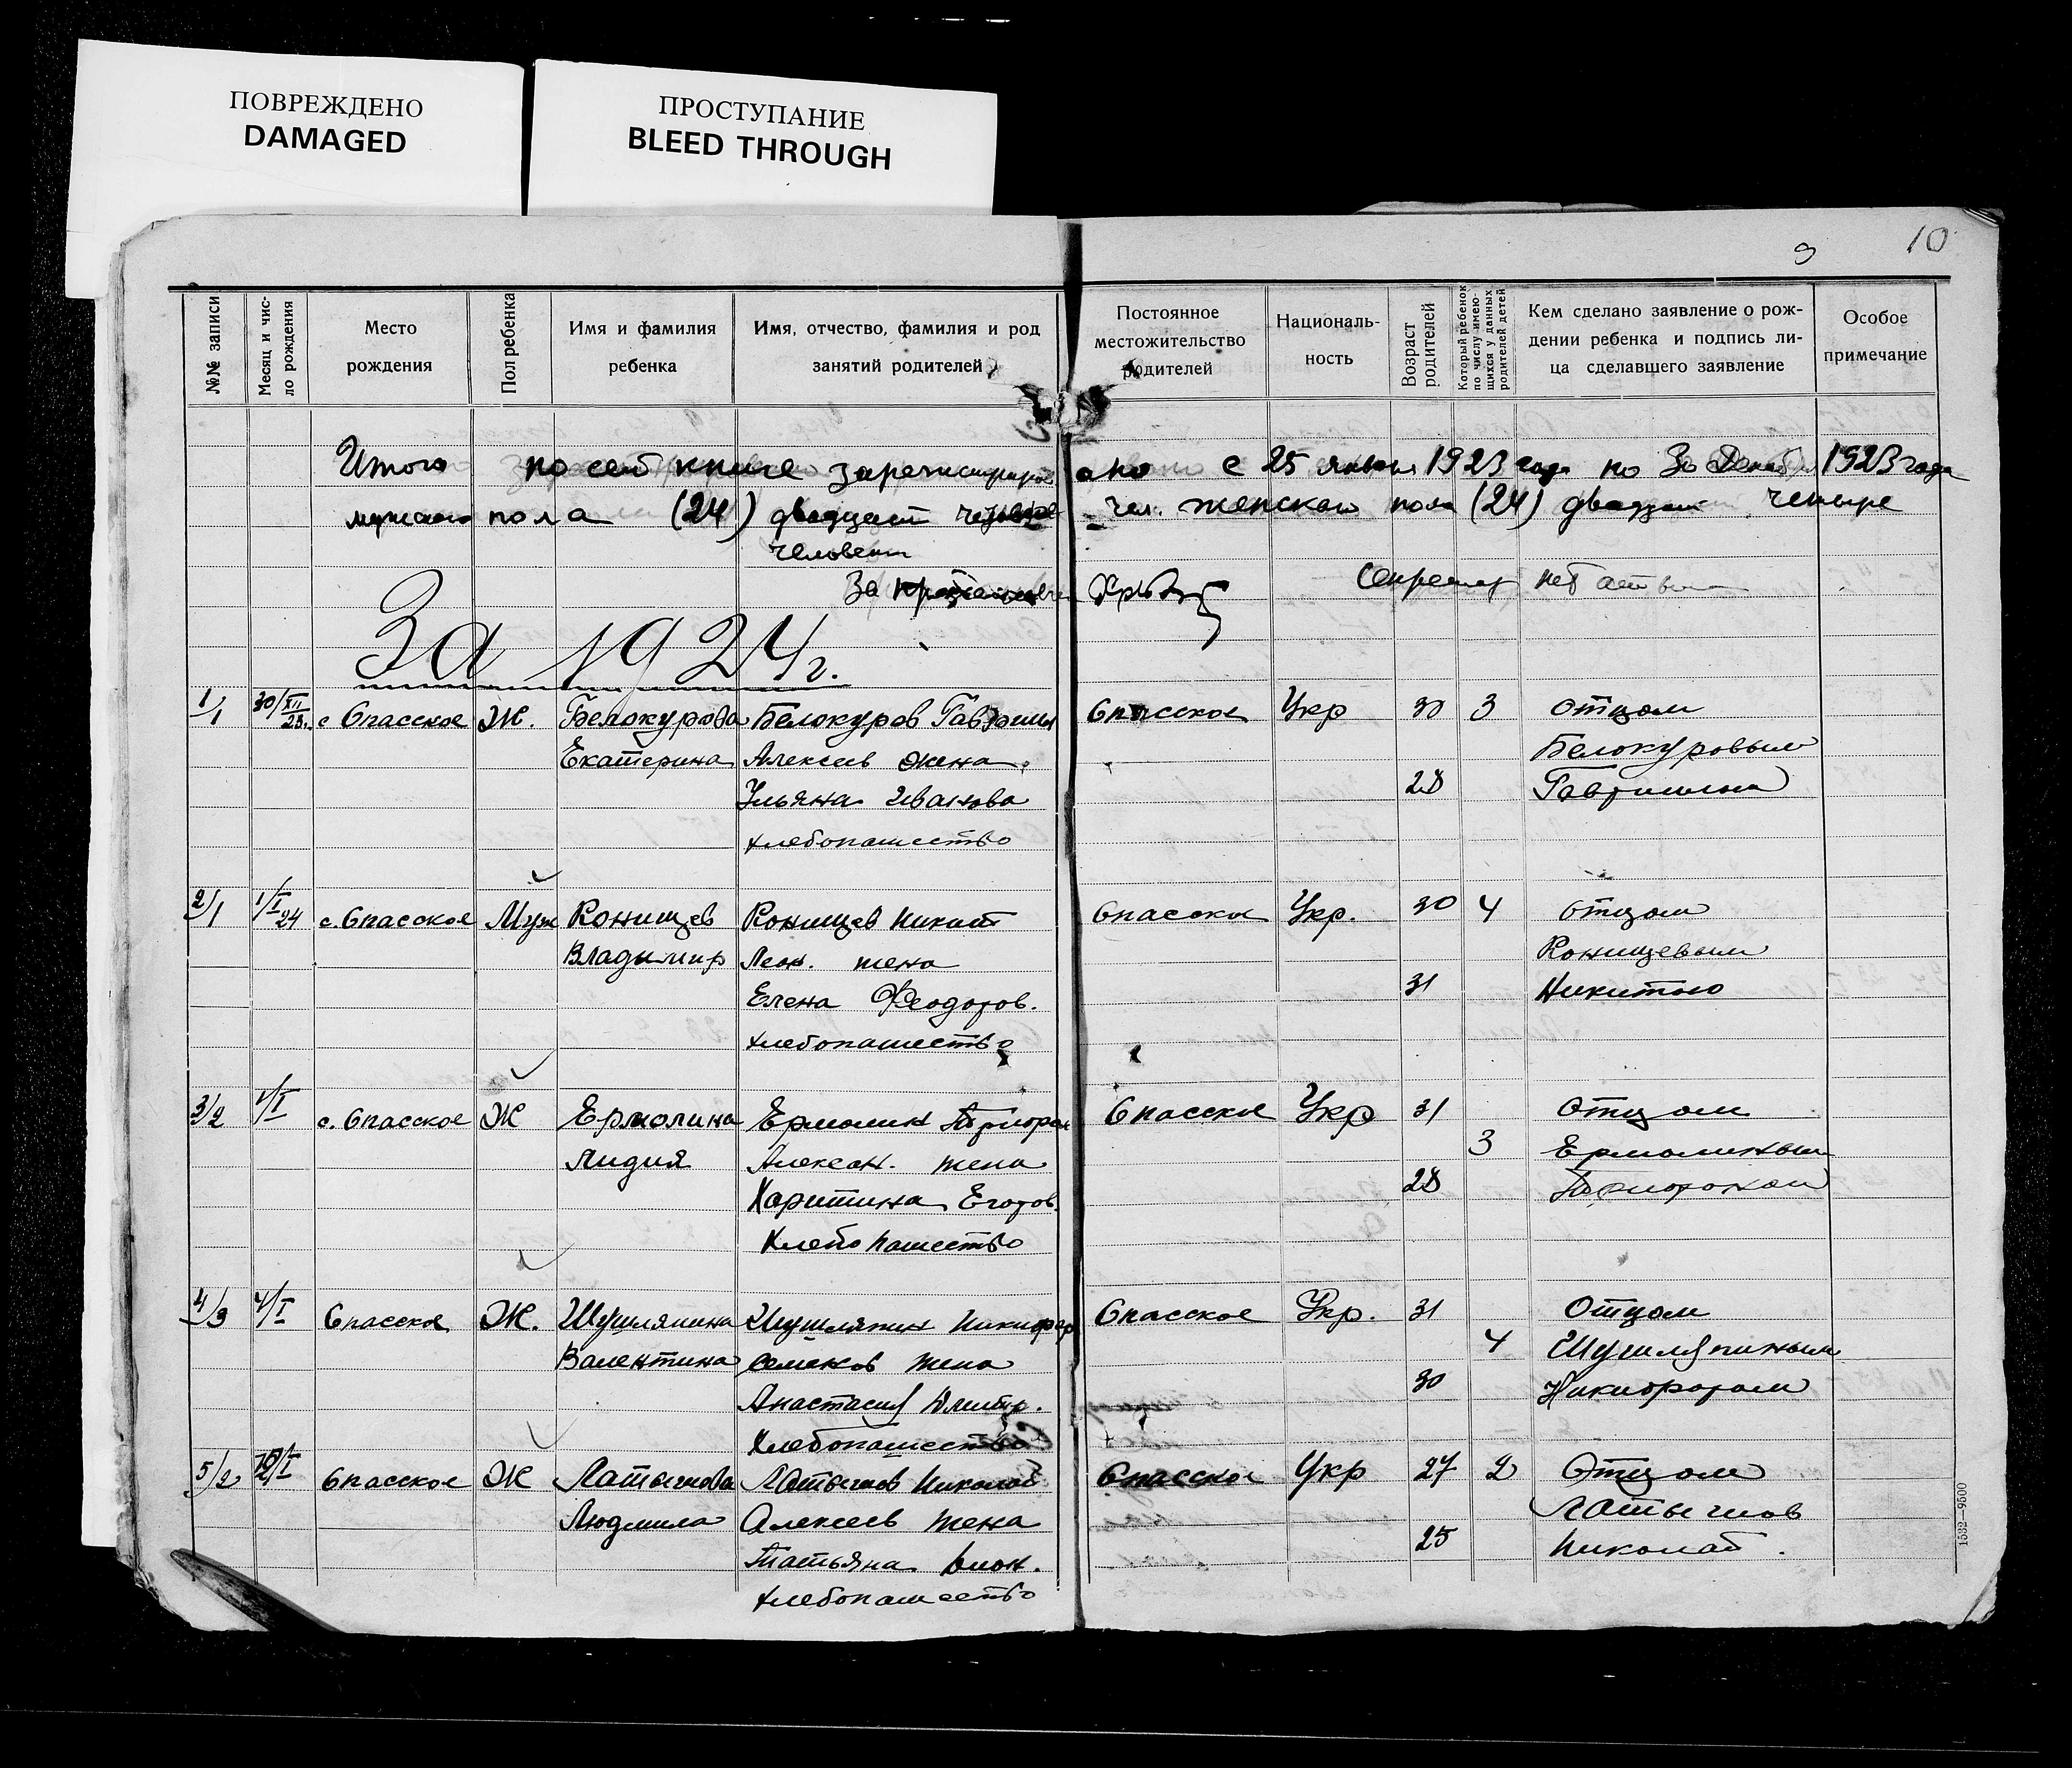 ПОВРЕЖДЕНО
DAMAGED
ПРОСТУПАНИЕ
BLEED THROUGH
9 10
№№ записи
Месяц и чис-
ло рождения
Место
рождения
Пол ребенка
Имя и фамилия
ребенка
Имя, отчество, фамилия и род
занятий родителей
Постоянное
местожительство
родителей
Националь-
ность
Возраст
родителей
Который ребенок
по числу имею-
щихся у данных
родителей детей
Кем сделано заявление о рож-
дении ребенка и подпись ли-
ца сделавшего заявление
Особое
примечание
Итого по сей книге зарегистриров ано с 25 января 1923 года по 30 Декаб 1923 года
мужского пола (24) двадцат четыре чел. женского пола (24) двадцат четыре
человек
За секретар
За 1924 г.
1/1 30/XII 23. с Спасское Ж. Белокурова Белокуров Гавриил Спасское Укр 30 3 Отцом
Екатерина Алексеев жена Белокуровым
Ульяна Иванова 28 Гавриилом
хлебопашество
2/1 1/I 24 с. Спасское Муж Конищев Конищев Никит Спасское Укр. 30 4 Отцом
Владимир Леон. жена Конищевым
Елена Феодоров. 31 Никитою
хлебопашество
3/2 1/I с. Спасское Ж Ермолина Ермолин Спасское Укр 31 Отцом
Лидия Алексан. жена 3 Ермолиным
Харитина Егоров. 28
Хлебопашество
4/3 4/I Спасское Ж. Шушляпина Шушляпин Никифор Спасское Укр. 31 Отцом
Валентина Семенов жена 4 Шушляпиным
Анастасия Дмитр. 30 Никифором
Хлебопашество
5/2 Спасское Ж Латышова Латышов Николай Спасское Укр 27 2 Отцом
Людмила Алексеев жена Латышов
Татьяна 25 Николай.
хлебопашество
1532—9500